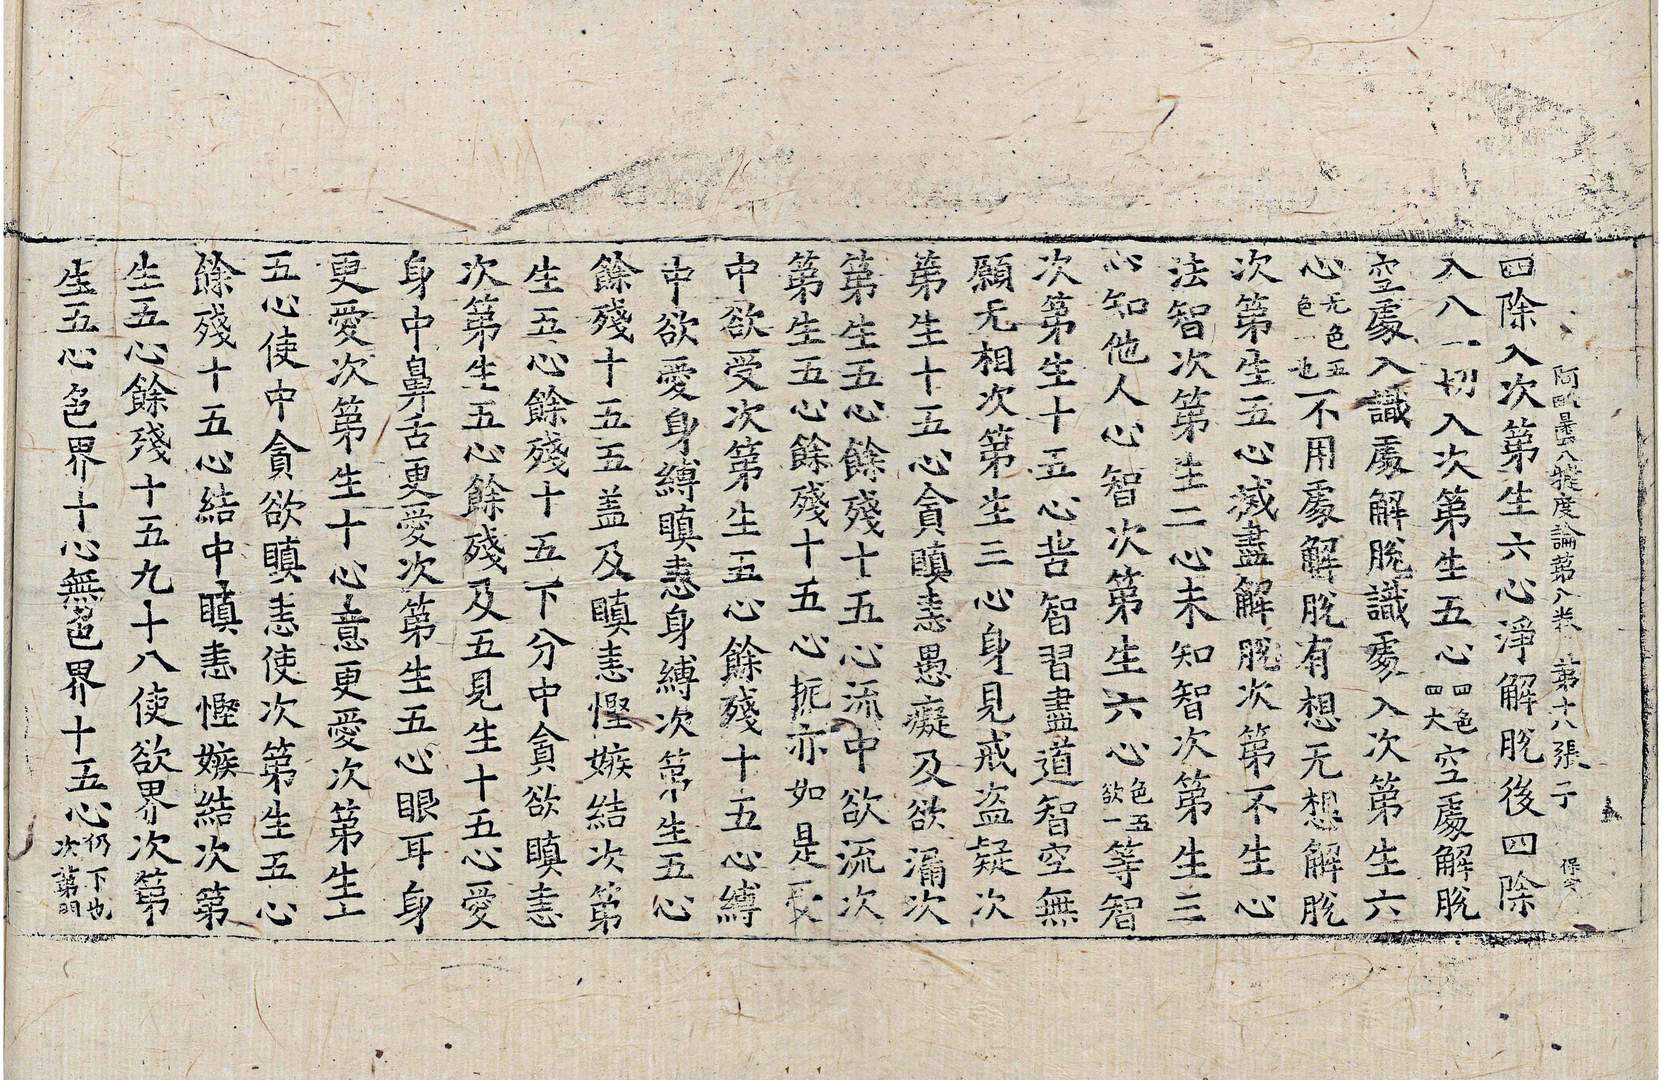 阿毗曇八揵度論第八卷 第十八張 于
四除入次第生六心淨解脫後四除
入八一切入次第生五心四色四大空處解脫
空處入識處解脫識處入次第生六
心无色五色一也不用處解脫有想无想解脫
次第生五心滅盡解脫次第不生心
法智次第生二心未知智次第生三
心知他人心智次第生六心色五欲一等智
次第生十五心苦智習盡道智空無
願无相次第生三心身見戒盜疑次
第生十五心貪瞋恚愚癡及欲漏次
第生五心餘殘十五心流中欲流次
第生五心餘殘十五心扼亦如是受
中欲受次第生五心餘殘十五心縛
中欲愛身縛瞋恚身縛次第生五心
餘殘十五五盖及瞋恚慳嫉結次第
生五心餘殘十五下分中貪欲瞋恚
次第生五心餘殘及五見生十五心愛
身中鼻舌更愛次第生五心眼耳身
更愛次第生十心意更愛次第生十
五心使中貪欲瞋恚使次第生五心
餘殘十五心結中瞋恚慳嫉結次第
生五心餘殘十五九十八使欲界次第
生五心色界十心無色界十五心仍下也次第明